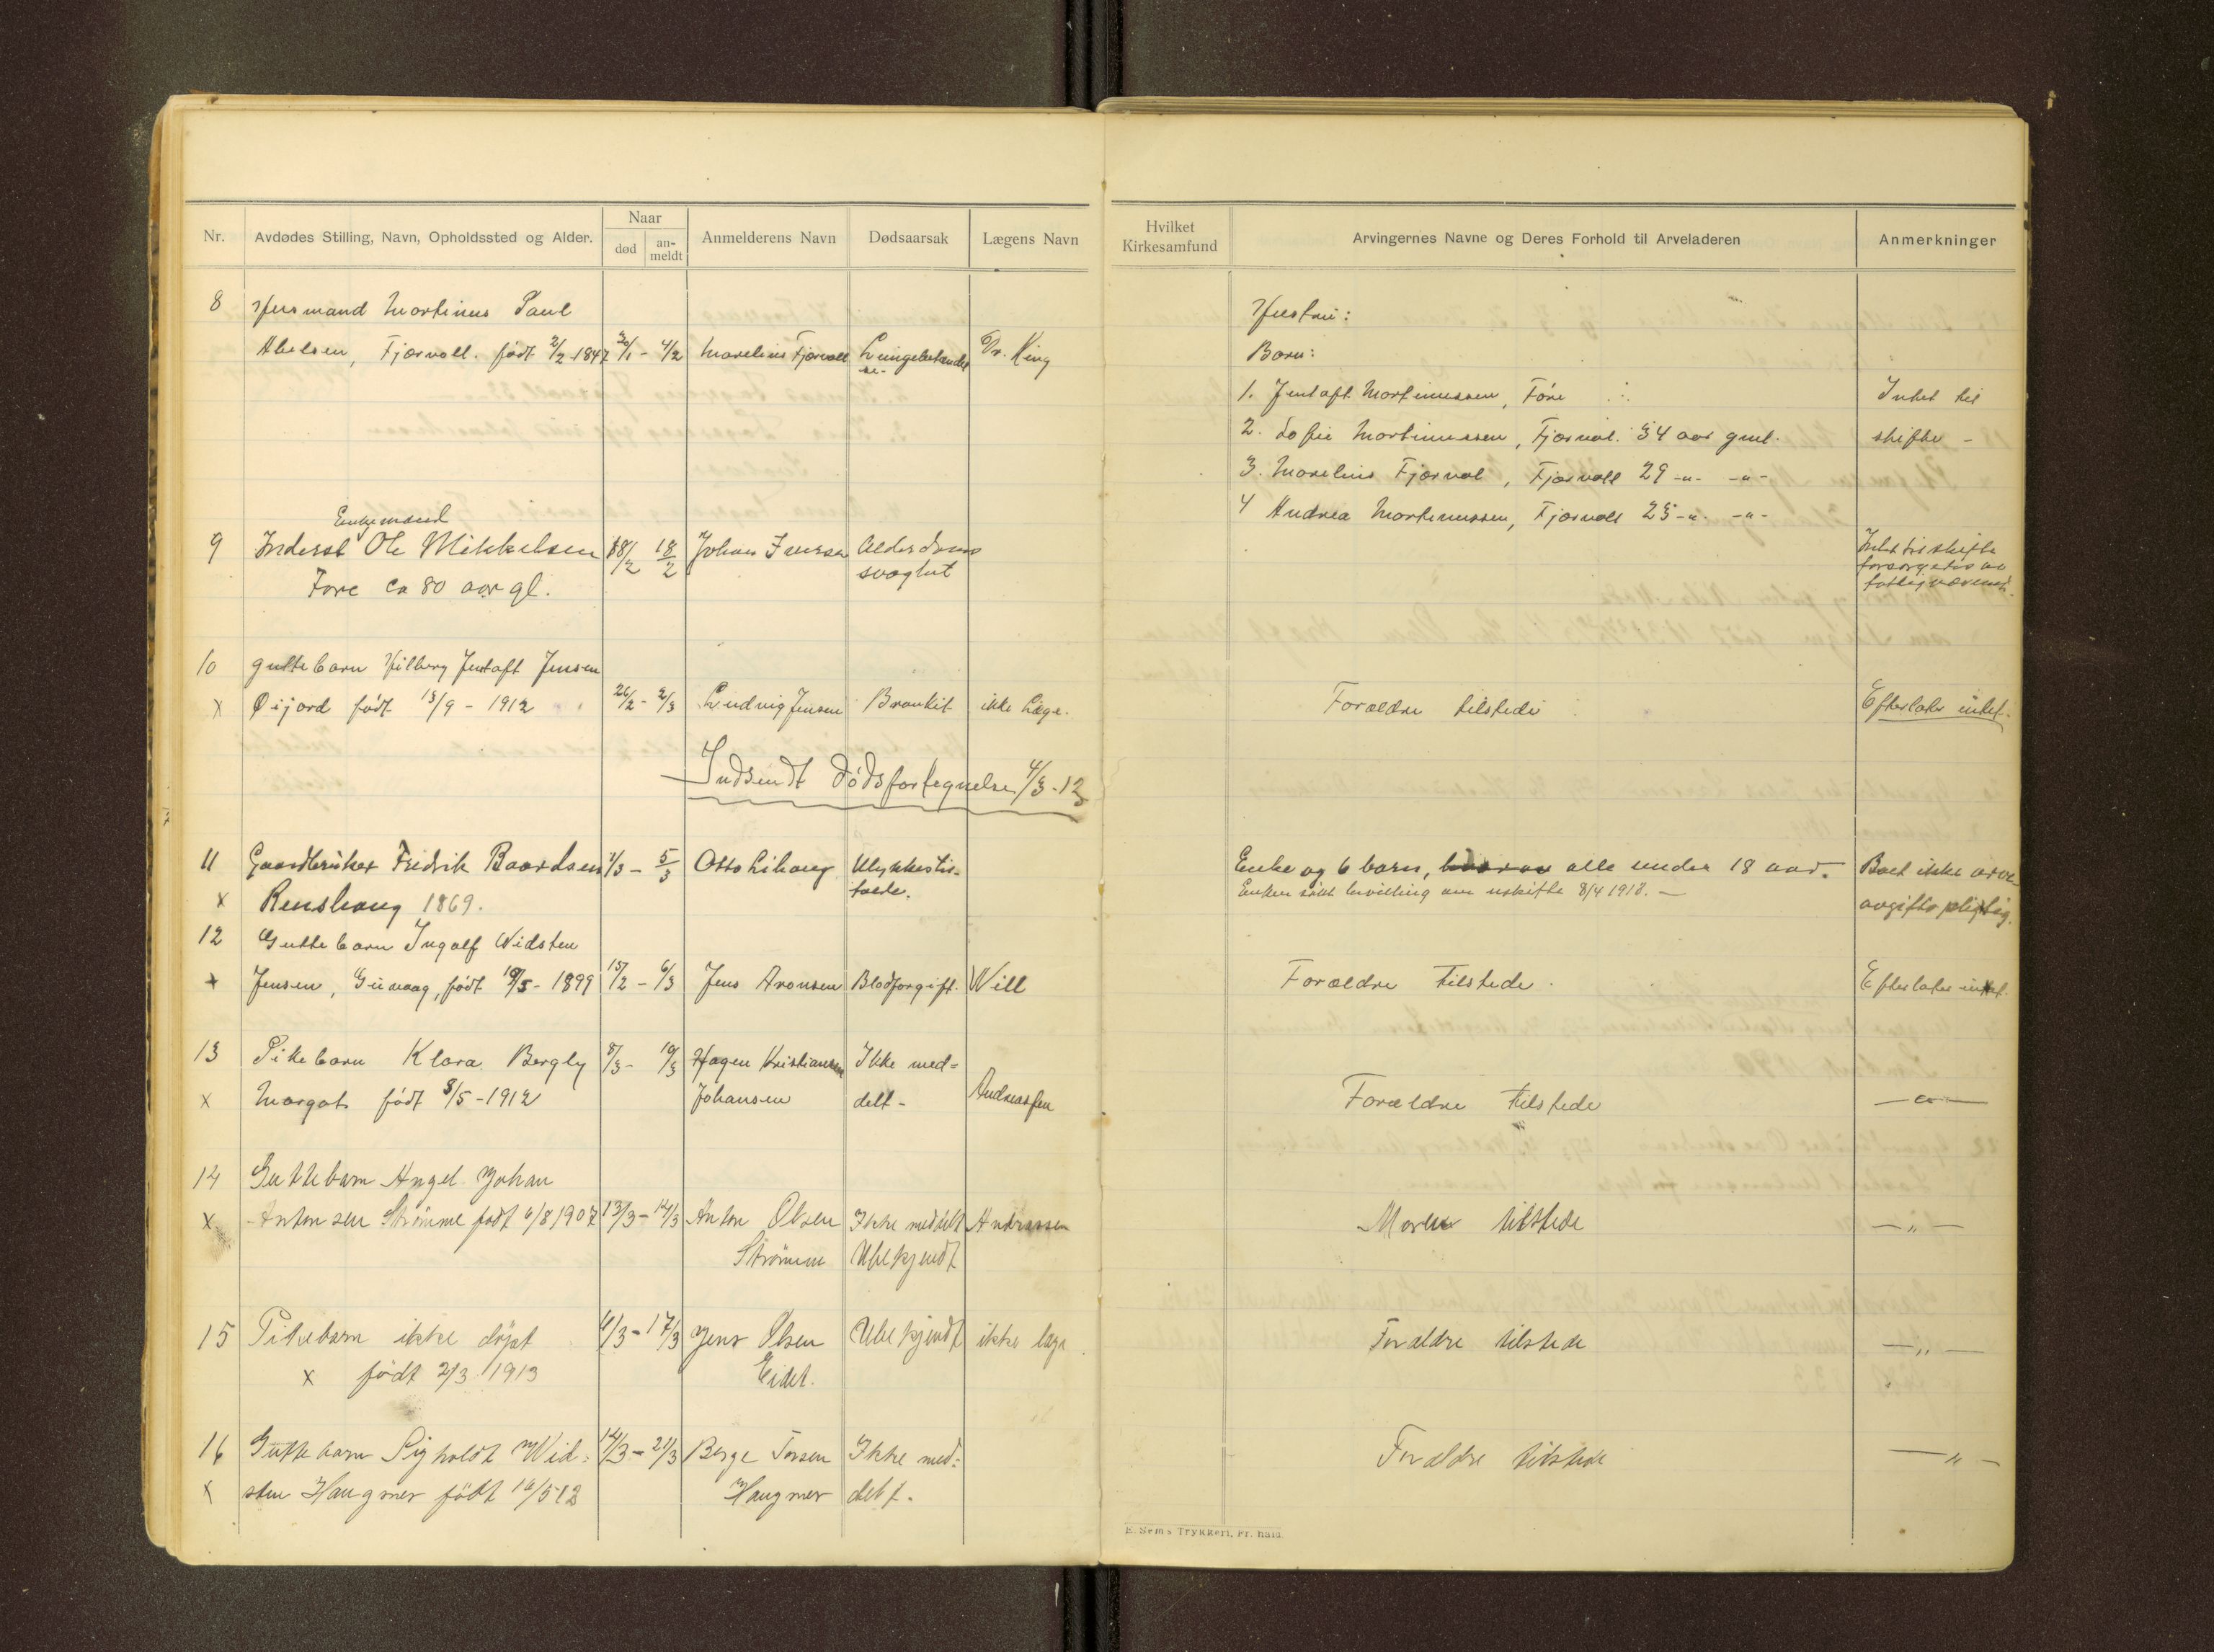 Nr.
Avdødes Stilling, Navn, Opholdssted og Alder.
Naar
død
an-
meldt
Anmelderens Navn
Dødsaarsak
Lægens Navn
Hvilket
Kirkesamfund
Arvingernes Navne og Deres Forhold til Arveladeren
Anmerkninger
8 Husmand Mortinus Paul
Abelsen, Fjærvoll. født 2/2-1847 30/1 - 4/2 Marelius Fjærvoll Lungebetændel
se- Dr. King
Hustru:
Barn:
1. Jentoft Mortinussen, Føre
2. Sofie Mortinussen, Fjærvol. 34 aar gml.
3. Marelius Fjærvol, Fjærvoll 29 -"- -"-
4 Andrea Mortinussen, Fjærvoll 25 -"- -"-
Intet til
skifte -
Enkemand
9 Inderst Ole Mikkelsen 18/2 18/2 Johan Iversen Alderdoms
Føre ca 80 aar gl. svaghet
Intet til skifte
forsørgedes av
fattigvæsenet.
10 guttebarn Hilberg Jentoft Jensen
x Øijord født 13/9 - 1912 26/2 - 2/3 Ludvig Jensen Bronkit ikke Læge.
Forældre tilstede
Efterlater intet.
Indsendt dødsfortegnelse 4/3-13
11 Gaardbruker Fredrik Baardsen 1/3 - 5/3 Otto Lihaug Ulykkestil-
x Renshaug 1869. fælde.
Enke og 6 barn, alle under 18 aar.
Enken søkt bevilling om uskifte 8/4 1918. -
Boet ikke arve
avgiftspligtig.
12 Guttebarn Ingolf Widsten
x Jensen, Guvaag, født 19/5 - 1899 15/2 - 6/3 Jens Aronsen Blodforgift. Will
Forældre tilstede.
Efterlater intet.
13 Pikebarn Klara Bergly 8/3 - 10/3 Hagen Kristiansen Ikke med=
x Margot født 8/5 - 1912 Johansen delt - Andreassen
Forældre tilstede
- " -
14 Guttebarn Angel Johan
x Antonsen Strømme født 6/8 1907 13/3 - 14/3 Anton Olsen Ikke meddelt Andreassen
Strømme Ubekjendt
Moren tilstede
- " -
15 Pikebarn ikke døpt 11/3 - 17/3 Jens Olsen Ubekjendt ikke læge
x født 2/3 1913 Eidet.
Forældre tilstede
- " -
16 Guttebarn Sigholdt Wid= 14/3 - 21/3 Berge Torsen Ikke med=
x sten Haugnes født 16/5 12 Haugnes delt.
Forældre tilstede
- " -
E. Sem's Trykkeri, Fr.hald.